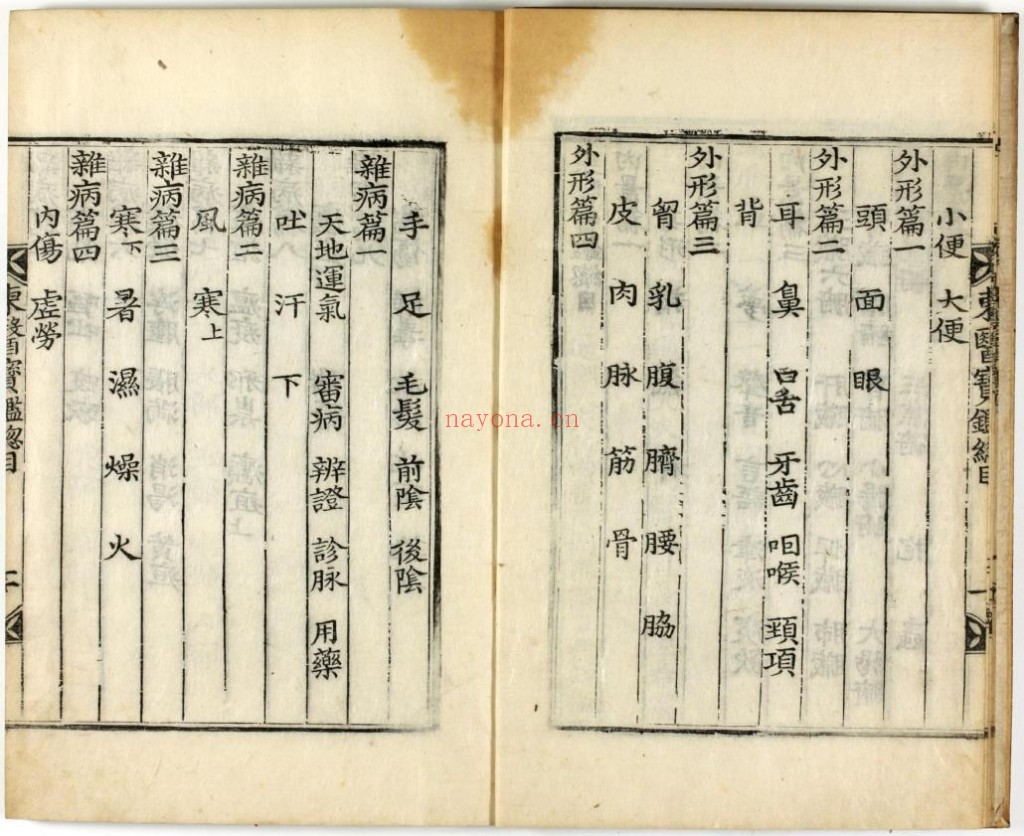 小便 大便
外形篇一
頭 面 眼
外形篇二
耳 鼻 口舌 牙齒 咽喉 頸項
背
外形篇三
胷 乳 腹 臍 腰 脇
皮 肉 脉 筋 骨
外形篇四
手 足 毛髮 前陰 後陰
雜病篇一
天地運氣 審病 辨證 診脉 用藥
吐 汗 下
雜病篇二
風 寒上
雜病篇三
寒下 暑 濕 燥 火
雜病篇四
內傷 虛勞
東醫寶鑑總目
一
東醫寶鑑總目
二
nayona.cn